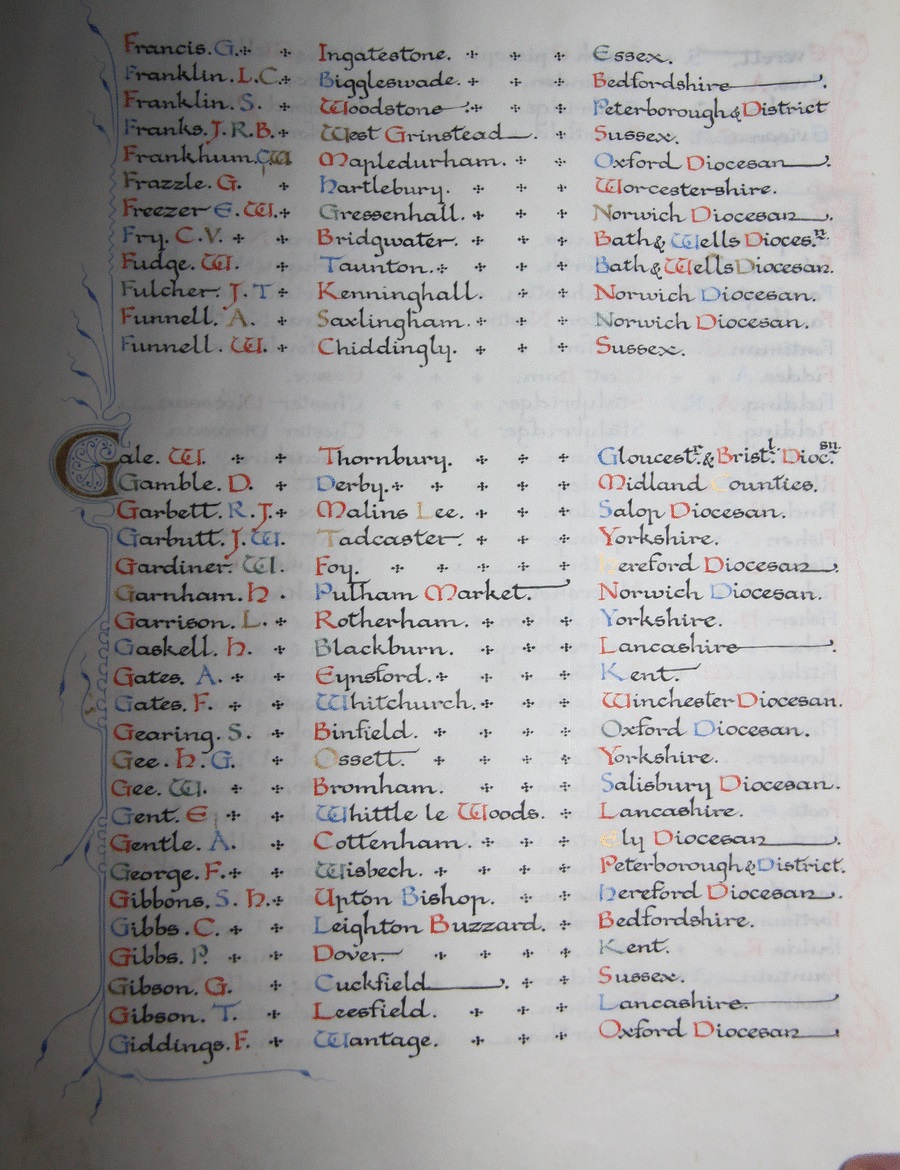 Francis. G. Ingatestone. Essex.
Franklin. L. C. Biggleswade. Bedfordshire.
Franklin. S. Woodstone Peterborough & District
Franks. J. R. B. West Grinstead. Sussex.
Frankhum. Mapledurham. Oxford Diocesan.
Frazzle. G. Hartlebury. Worcestershire.
Freezer E. W. Gressenhall. Norwich Diocesan.
Fry. C. V. Bridgwater. Bath & Wells Dioces.n
Fudge. W. Taunton. Bath & Wells Diocesan.
Fulcher. J. T Kenninghall. Norwich Diocesan.
Funnell. A. Saxlingham. Norwich Diocesan.
Funnell. W. Chiddingly. Sussex.
Gale. W. Thornbury. Gloucest.r & Brist.l Dioc.sn.
Gamble. D. Derby. Midland Counties.
Garbett. R. J. Malins Lee. Salop Diocesan.
Garbutt. J. W. Tadcaster. Yorkshire.
Gardiner. W. Foy. Hereford Diocesan.
Garnham. H. Pulham Market. Norwich Diocesan.
Garrison. L. Rotherham. Yorkshire.
Gaskell. H. Blackburn. Lancashire.
Gates. A. Eynsford. Kent
Gates. F. Whitchurch. Winchester Diocesan.
Gearing. S. Binfield. Oxford Diocesan.
Gee. H. G. Ossett. Yorkshire.
Gee. W. Bromham. Salisbury Diocesan.
Gent. E Whittle le Woods. Lancashire.
Gentle. A. Cottenham. Ely Diocesan.
George. F. Wisbech. Peterborough & District.
Gibbons. S. H. Upton Bishop. Hereford Diocesan.
Gibbs. C. Leighton Buzzard. Bedfordshire.
Gibbs. P. Dover. Kent.
Gibson. G. Cuckfield. Sussex.
Gibson. T. Leesfield. Lancashire.
Giddings. F. Wantage. Oxford Diocesan